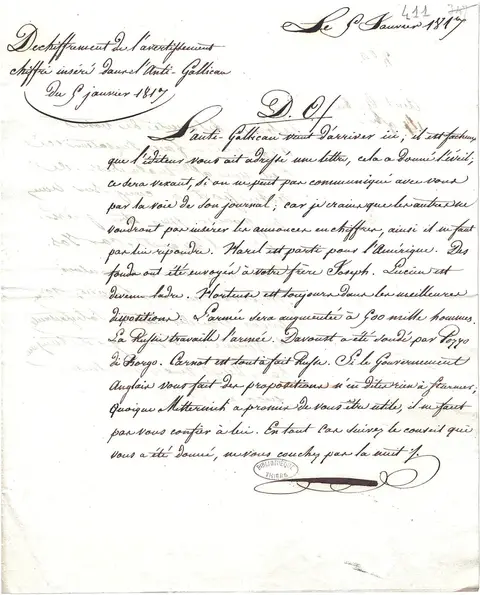 411
Le 5 Janvier 1817
Dechiffrement de l'avertissement
chiffré inséré dans l'Anti-Gallican
du 5 janvier 1817
D. O/
L'anti-Gallican vient d'arriver ici; il est facheux
que l'éditeur vous ait adressé une lettre, cela a donné l'éveil;
ce sera vexant, si on ne peut pas communiquer avec vous
par la voie de son journal; car je crains que les autres ne
voudront pas insérer les annonces en chiffres, ainsi il ne faut
pas lui répondre. Harel est parti pour l'Amérique. Des
fonds ont été envoyés à votre frère Joseph. Lucien est
devenu ladre. Hortense est toujours dans les meilleures
dispositions. L'armée sera augmentée à 500 mille hommes.
La Russie travaille l'armée. Davoust a été sondé par Pozzo
di Borgo. Carnot est tout à fait Russe. Si le Gouvernement
Anglais vous fait des propositions n'en dites rien à
Quoique Metternich a promis de vous être utile, il ne faut
pas vous confier à lui. En tout cas suivez le conseil que
vous a été donné, ne vous couchez pas la nuit /.
BIBLIOTHÈQUE
THIERS